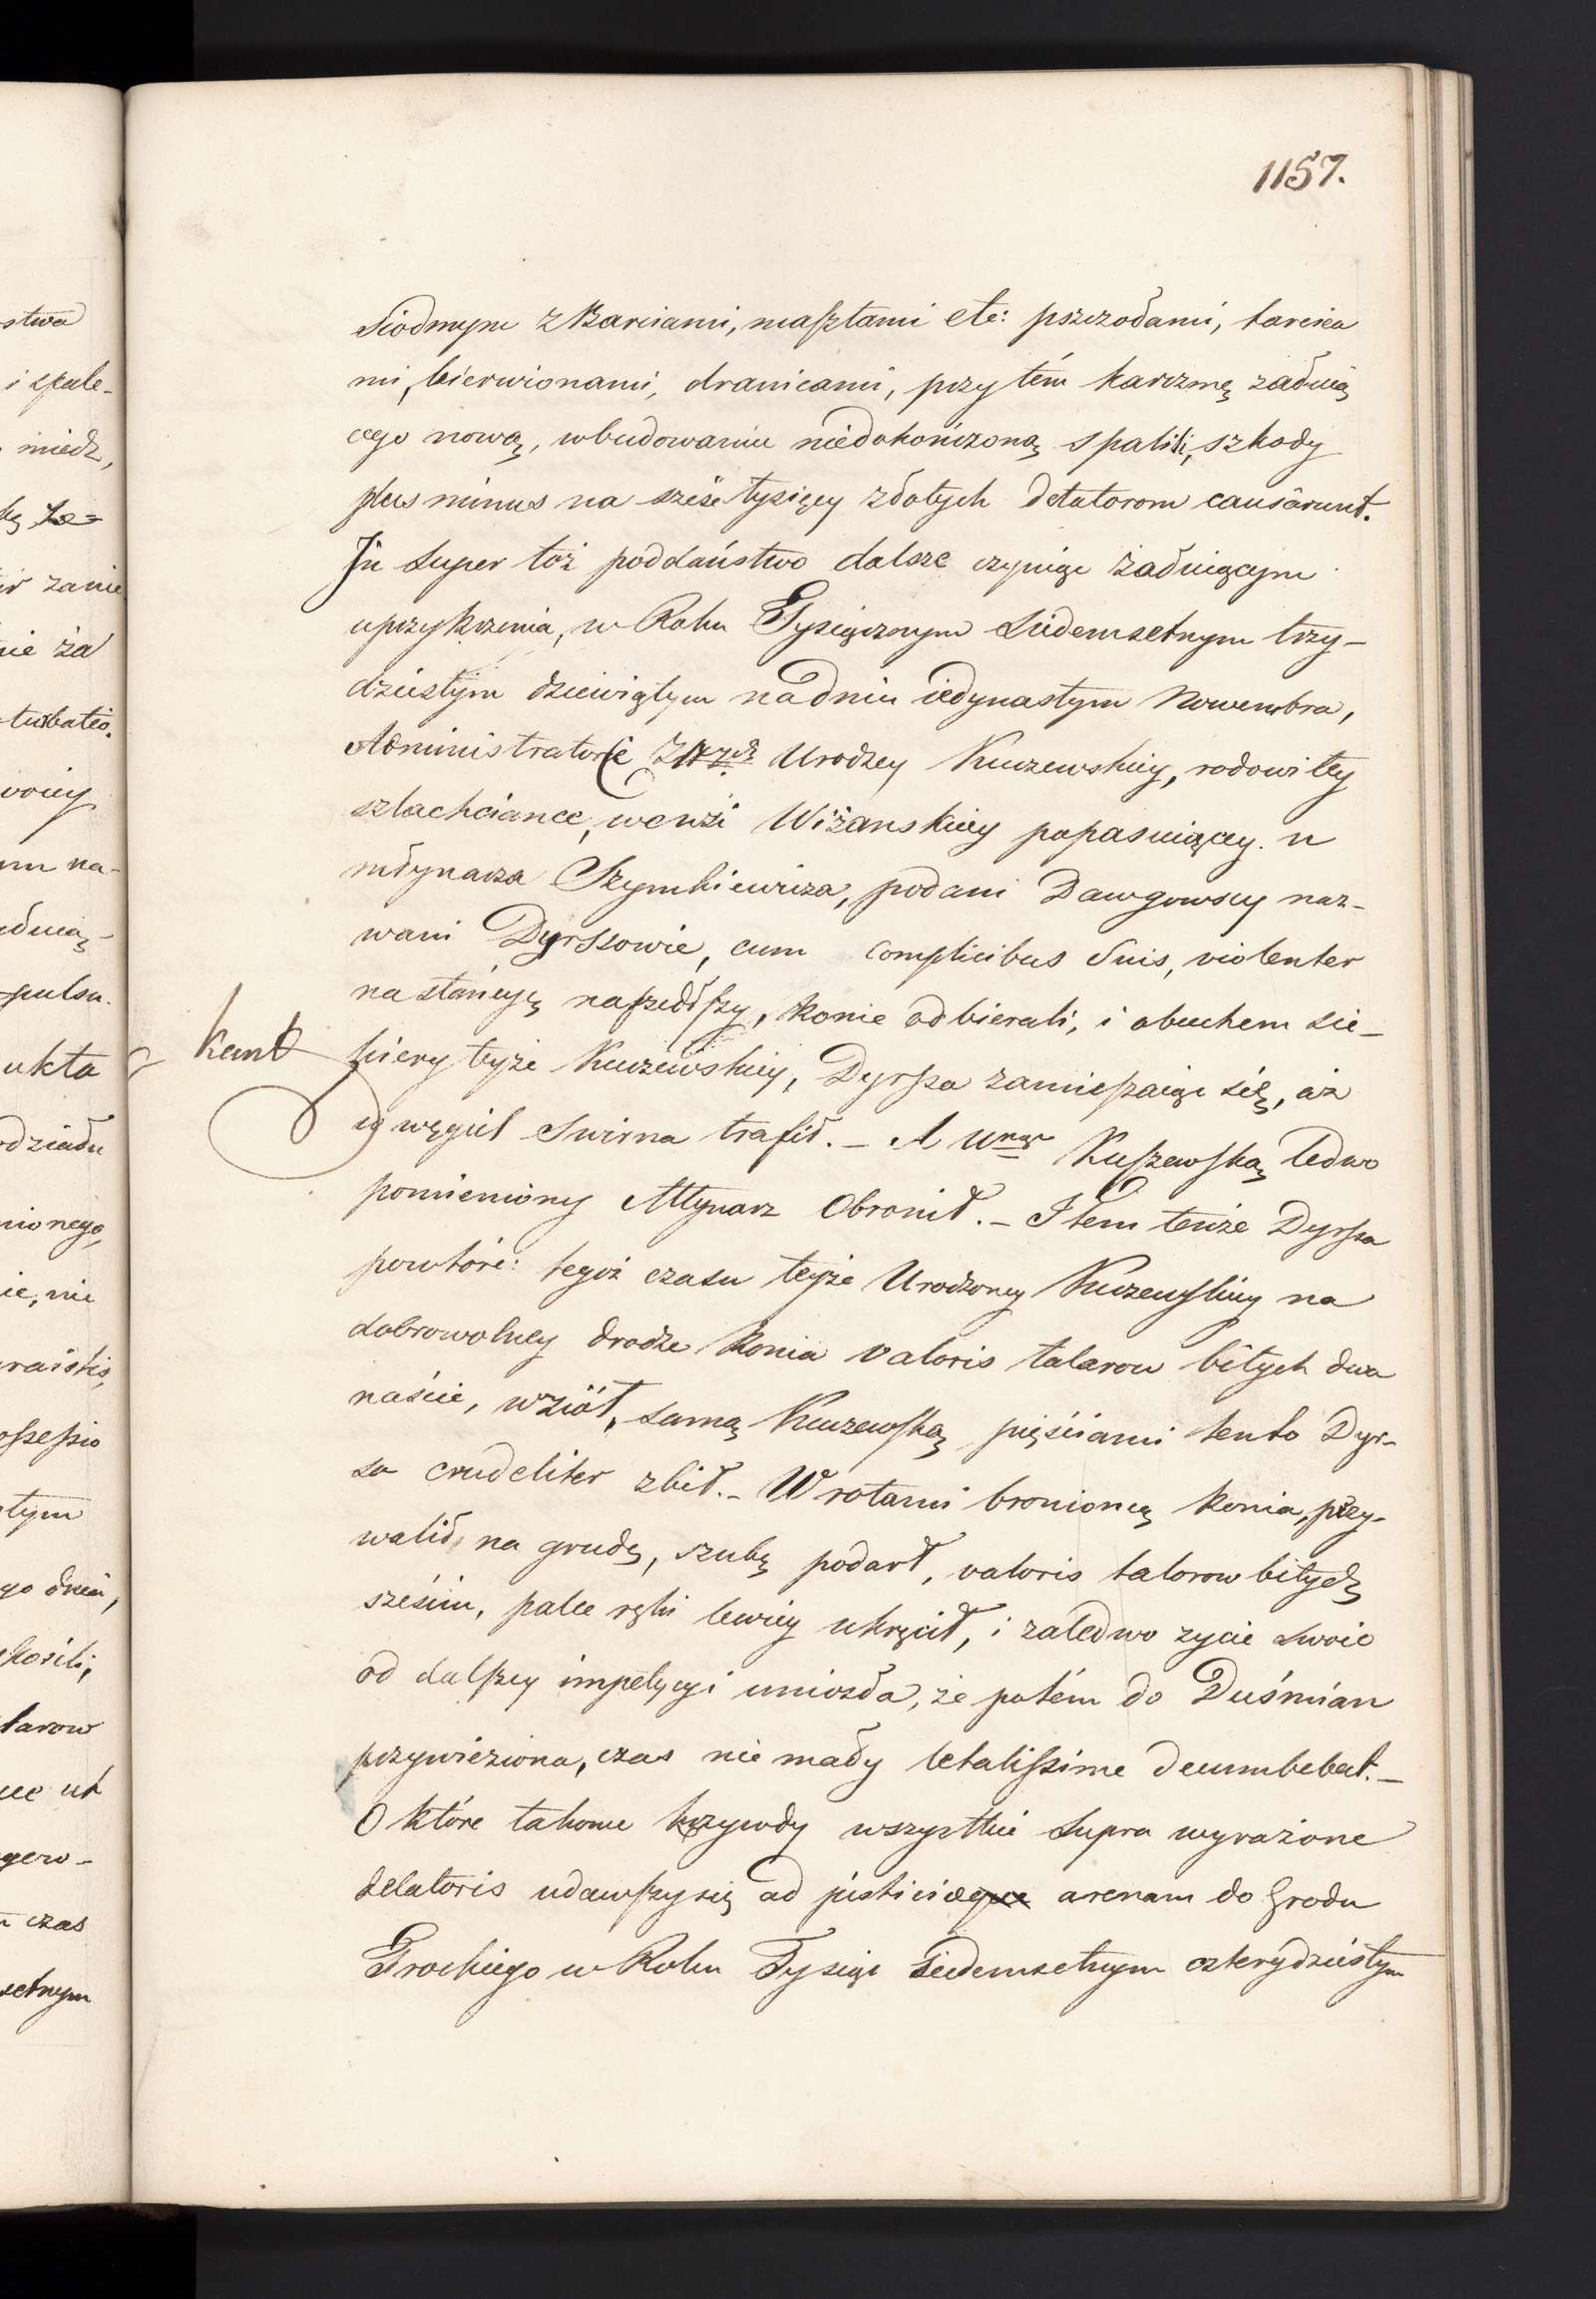 1157.
Siodmym z Barciami, masztami etc: pszczołami, tarcica
mi, bierwionami, dranicami, przy tém karczmę żałuią
cego nową, wbudowaniu niedokończoną spalili, szkody
plus minus na sześć tysięcy złotych Delatorom causârunt.
In Super toż poddaństwo dalsze czyniąc żałuiącym
uprzykrzenia, w Roku Tysiącznym Siedemsetnym trzy-
dziestym dziewiątym na dniu iedynastym Nowembra,
Administratorce Urodzey Kuczewskiey, rodowitey
szlachciance, we wsi Wiżanskiey popasuiącey u
młynarza Szymkiewicza, podani Dawgowscy naz-
wani Dyrszowie, cum complicibus Suis, violenter
na stáncyę naszedłszy, konie odbierali, i obuchem sie-
kiery teyże Kuczewskiey, Dyrsza zamieszaiąc się, aż
w węgieł Swirna trafił. – A Kuszewską ledwo
pomieniony Młynarz Obronił. – Item tenże Dyrsza
powtóre: tegoż czasu teyże Urodzoney Kuczewskiey na
dobrowolney drodze konia valoris talarow bitych dwa
naście, wziół, samą Kuczewską pięściami tento Dyr-
sa crudeliter zbił. – Wrotami bronioncą konia, przy-
walił, na grudę, szubę podarł, valoris talorow bitych
sześciu, palce ręki lewiey ukręcił, i zaledwo zycie swoie
od dalszey impetycyi uniosła, że potém do Duśmian
przywieziona, czas nie mały letalissime decumbebat. –
O które takowe krzywdy wszystkie supra wyrażone
delatoris udawszy się ad justiciae arenam do Grodu
Trockiego w Roku Tysiąc Siedemsetnym czterydziestym